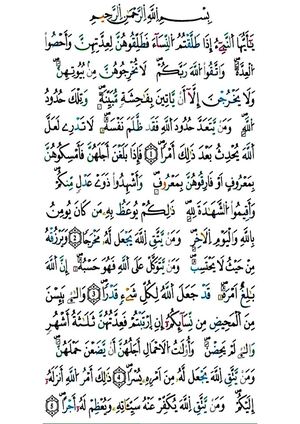 بِسْمِ اللَّهِ الرَّحْمَٰنِ الرَّحِيمِ
يَٰٓأَيُّهَا النَّبِىُّ إِذَا طَلَّقْتُمُ النِّسَآءَ فَطَلِّقُوهُنَّ لِعِدَّتِهِنَّ وَأَحْصُوا
الْعِدَّةَ وَاتَّقُوا اللَّهَ رَبَّكُمْ لَا تُخْرِجُوهُنَّ مِنۢ بُيُوتِهِنَّ
وَلَا يَخْرُجْنَ إِلَّآ أَن يَأْتِينَ بِفَٰحِشَةٍ مُّبَيِّنَةٍ وَتِلْكَ حُدُودُ
اللَّهِ وَمَن يَتَعَدَّ حُدُودَ اللَّهِ فَقَدْ ظَلَمَ نَفْسَهُ لَا تَدْرِى لَعَلَّ
اللَّهَ يُحْدِثُ بَعْدَ ذَٰلِكَ أَمْرًا ١ فَإِذَا بَلَغْنَ أَجَلَهُنَّ فَأَمْسِكُوهُنَّ
بِمَعْرُوفٍ أَوْ فَارِقُوهُنَّ بِمَعْرُوفٍ وَأَشْهِدُوا ذَوَىْ عَدْلٍ مِّنكُمْ
وَأَقِيمُوا الشَّهَٰدَةَ لِلَّهِ ذَٰلِكُمْ يُوعَظُ بِهِ مَن كَانَ يُؤْمِنُ
بِاللَّهِ وَالْيَوْمِ الْءَاخِرِ وَمَن يَتَّقِ اللَّهَ يَجْعَل لَّهُ مَخْرَجًا ٢ وَيَرْزُقْهُ
مِنْ حَيْثُ لَا يَحْتَسِبُ وَمَن يَتَوَكَّلْ عَلَى اللَّهِ فَهُوَ حَسْبُهُ إِنَّ اللَّهَ
بَٰلِغُ أَمْرِهِ قَدْ جَعَلَ اللَّهُ لِكُلِّ شَىْءٍ قَدْرًا ٣ وَالَّٰٓـِٔى يَئِسْنَ
مِنَ الْمَحِيضِ مِن نِّسَآئِكُمْ إِنِ ارْتَبْتُمْ فَعِدَّتُهُنَّ ثَلَٰثَةُ أَشْهُرٍ
وَالَّٰٓـِٔى لَمْ يَحِضْنَ وَأُولَٰتُ الْأَحْمَالِ أَجَلُهُنَّ أَن يَضَعْنَ حَمْلَهُنَّ
وَمَن يَتَّقِ اللَّهَ يَجْعَل لَّهُ مِنْ أَمْرِهِ يُسْرًا ٤ ذَٰلِكَ أَمْرُ اللَّهِ أَنزَلَهُ
إِلَيْكُمْ وَمَن يَتَّقِ اللَّهَ يُكَفِّرْ عَنْهُ سَيِّـَٔاتِهِ وَيُعْظِمْ لَهُ أَجْرًا ٥